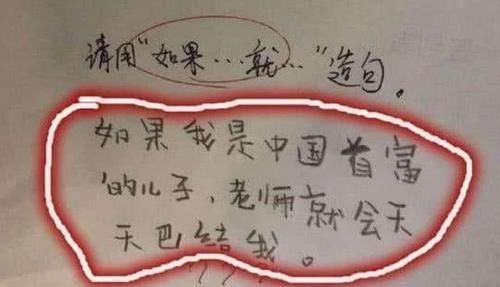 请用"如果…就…"造句。
如果我是中国首富
的儿子，老师就会天
天巴结我。